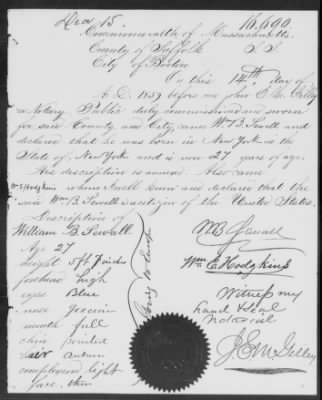 Dec 15 16,600.
Commonwealth of Massachusetts
County of Suffolk S S.
City of Boston
On this 14th day of
A. D. 1859 before me
a Notary Public duly commissioned and sworn
for said County and City, came Wm B. Sewall and
declared that he was born in New York in the
State of New York and is now 27 years of age.
His description is annexed. Also came
Wm E Hodgkins whom I well know and declared that the
said Wm B. Sewall is a citizen of the United States.
Description of
William B. Sewall
Age 27
height 5 ft 7 inches
forehead high
eyes Blue
nose Grecian
mouth full
chin pointed
hair auburn
complexion light
face thin
going to Europe
W B Sewall
Wm. E. Hodgkins
Witness my
hand & Seal
Notarial